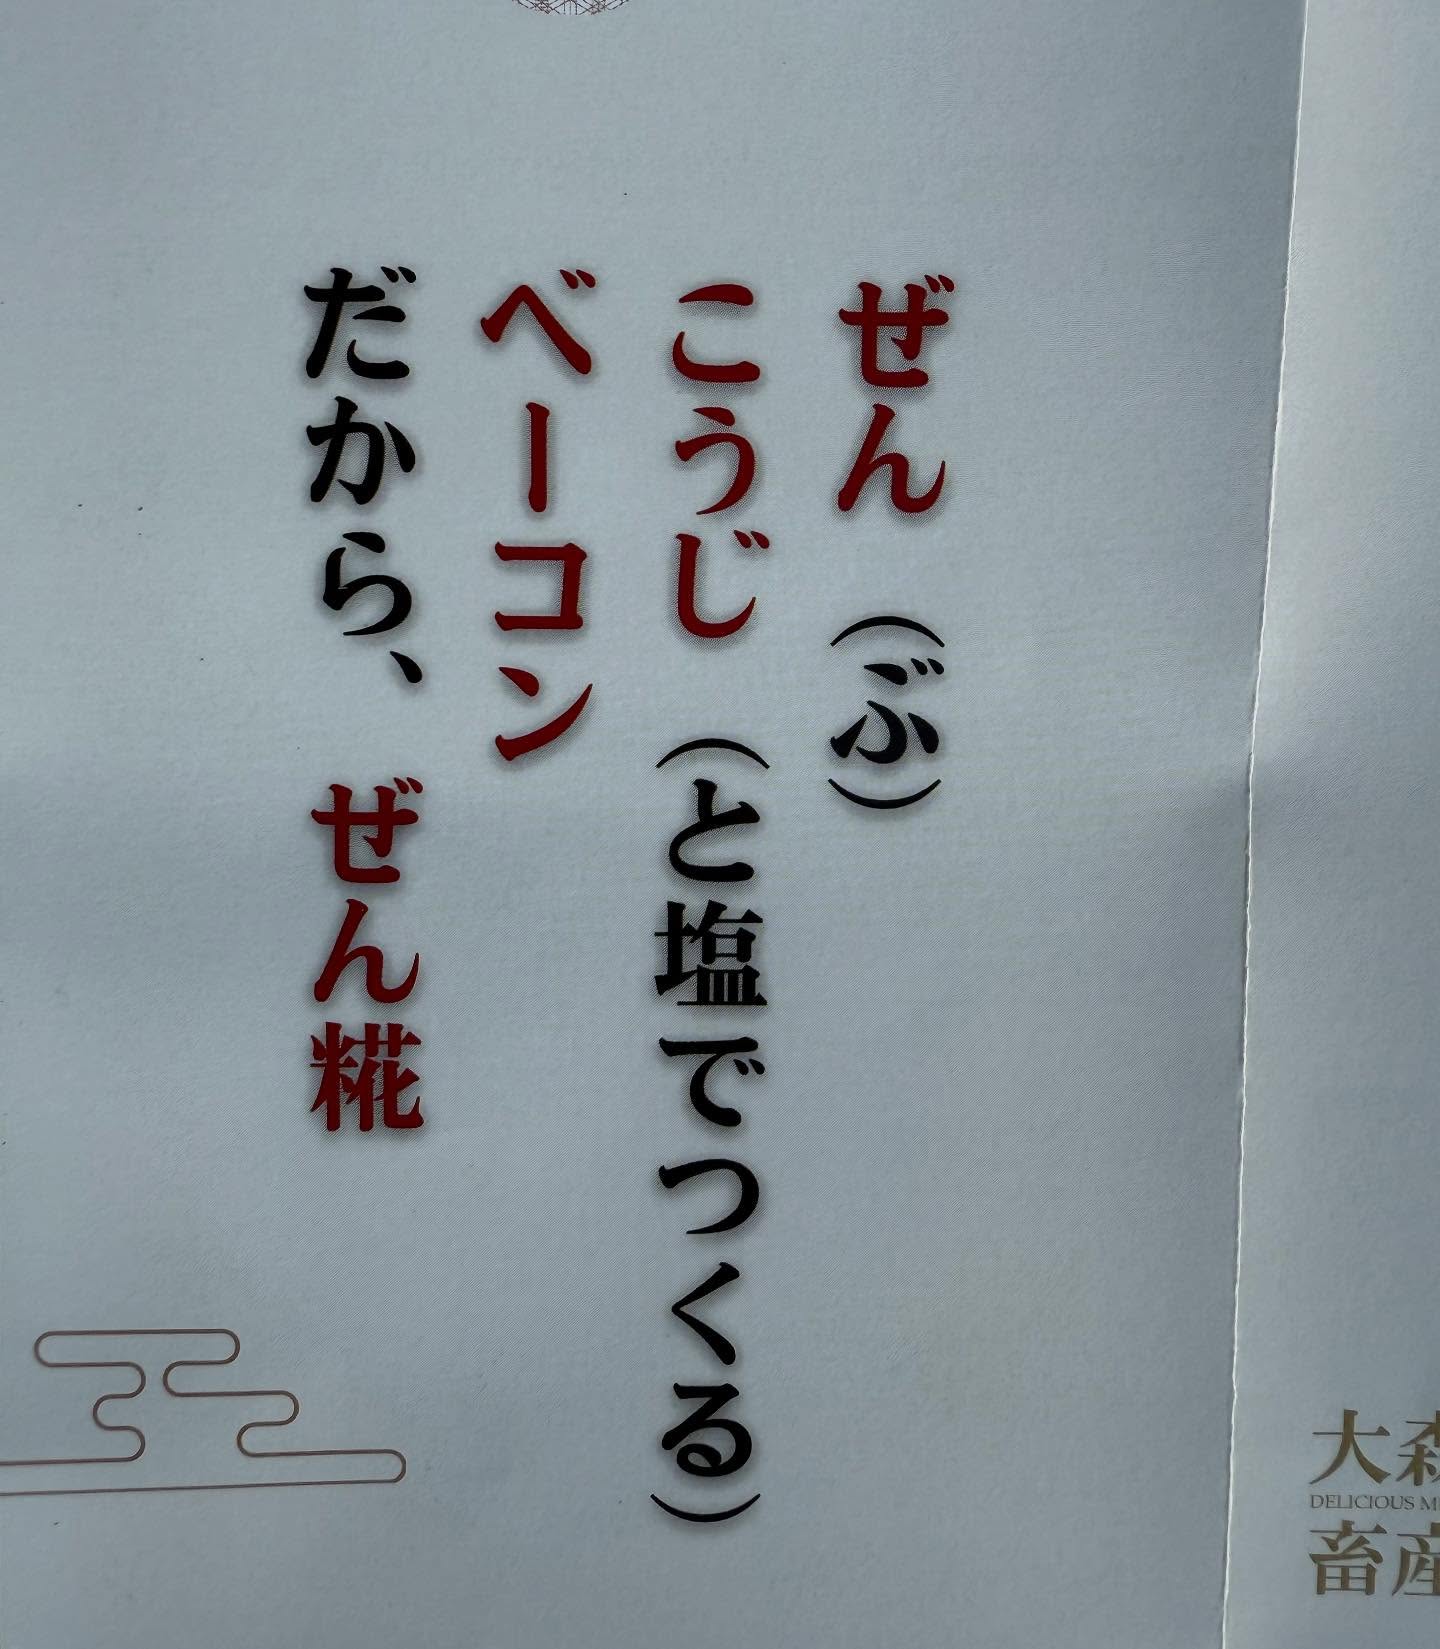 ぜん（ぶ）
こうじ（と塩でつくる）
ベーコン
だから、ぜん糀
大森
DELICIOUS
畜産